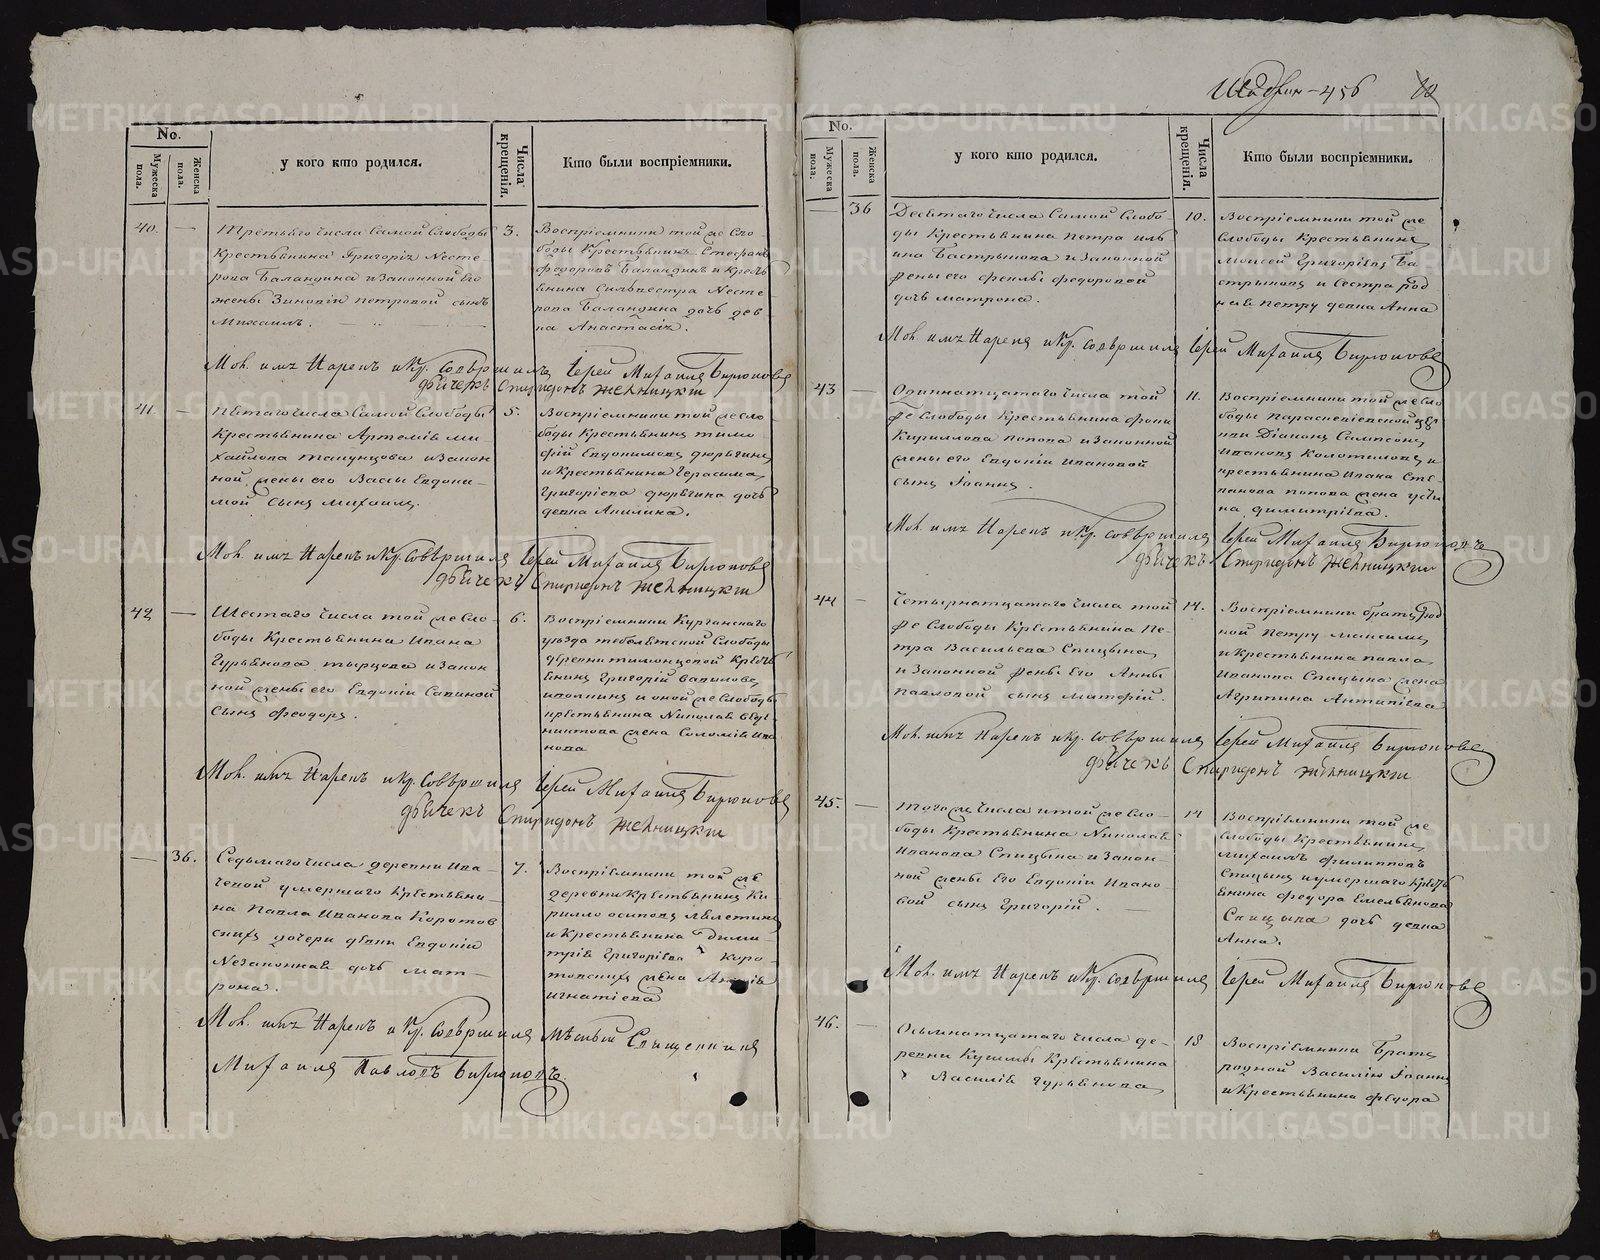 No.
Мужеска пола.
Женска пола.
у кого кто родился.
Числа крещенія.
Кто были воспріемники.
40. —
Третьяго числа Самой Слободы
Крестьянина Григорія Несте
рова Баландина и законной его
жены Зиновіи Петровой сынъ
Михаилъ.
3.
Воспріемники той же Сло
боды Крестьянинъ Стефанъ
Федоровъ Баландинъ и кресть
янина Сильвестра Несте
рова Баландина дочь дев
ка Анастасія.
Мол. имя Нареклъ и Кр. Совершилъ Іерей Михаилъ Бирюковъ
дьячекъ Спиридонъ
41. —
Пятаго числа Самой Слободы
Крестьянина Артемія Ми
хайлова и закон
ной жены его Вассы Евдоки
мой сынъ Михаилъ.
5.
Воспріемники той же сло
боды Крестьянинъ Тимо
фій Евдокимовъ Дюрягинъ
и Крестьянина Герасима
Григоріева Дюрягина дочь
девка Акилина.
Мол. имя Нареклъ и Кр. Совершилъ Іерей Михаилъ Бирюковъ
дьячекъ Спиридонъ
42 —
Шестаго числа той же сло
боды Крестьянина Ивана
Гурьянова и закон
ной жены его Евдокіи Савиной
сынъ Феодоръ.
6.
Воспріемники Курганскаго
уезда Слободы
деревни кресть
янинъ Григорій
и оной же Слободы
крестьянина Николая
жена Соломія Ива
нова
Мол. имя Нареклъ и Кр. Совершилъ Іерей Михаилъ Бирюковъ
дьячекъ Спиридонъ
— 36.
Седьмаго числа деревни Ива
чевой умершаго Крестьяни
на Павла Иванова Коротов
скихъ дочери девки Евдокіи
Незаконная дочь Мат
рона.
7.
Воспріемники той же
деревни Крестьянинъ Ки
рилло Осиповъ
и Крестьянина Дими
трія Григоріева Коро
товскихъ жена
Игнатіева
Мол. имя Нареклъ и Кр. Совершилъ Мѣстный Священникъ
Михаилъ Павловъ Бирюковъ.
Шадрин – 456
No.
Мужеска пола.
Женска пола.
у кого кто родился.
Числа крещенія.
Кто были воспріемники.
— 36
Десятаго числа Самой Слобо
ды Крестьянина Петра Иль
ина Бастрыкова и законной
жены его Федоровой
дочь Матрона.
10.
Воспріемники той же
Слободы Крестьянинъ
Моисей Григоріевъ Ба
стрыковъ и Сестра род
ная Петру девка Анна
Мол. имя Нарекъ и Кр. Совершилъ Іерей Михаилъ Бирюковъ
43 —
Одиннатцатаго числа той
же Слободы Крестьянина Фоки
Кириллова Попова и законной
жены его Евдокіи Ивановой
сынъ Іоаннъ.
11.
Воспріемники той же сло
боды Параскевіевской цер
кви Діаконъ Сампсонъ
Ивановъ Колотиловъ и
крестьянина Ивана Сте
панова Попова жена Усти
на Димитріева.
Мол. имя Нареклъ и Кр. Совершилъ Іерей Михаилъ Бирюковъ
дьячекъ Спиридонъ
44 —
Четырнатцатаго числа той
же Слободы Крестьянина Пе
тра Васильева Спицына
и законной жены его Анны
Павловой сынъ Матфій.
14.
Воспріемники братъ род
ной Петру Максимъ
и Крестьянина Павла
Иванова Спицына жена
Агрипина Антипіева
Мол. имя Нареклъ и Кр. Совершилъ Іерей Михаилъ Бирюковъ
дьячекъ Спиридонъ
45. —
Того же числа и той же Сло
боды Крестьянина Николая
Иванова Спицына и закон
ной жены его Евдокіи Ивано
вой сынъ Григорій.
14
Воспріемники той же
Слободы Крестьянинъ
Михаилъ Филипповъ
Спицынъ и умершаго кресть
янина Федора Емельянова
Спицына дочь девка
Анна.
Мол. имя Нареклъ и Кр. Совершилъ Іерей Михаилъ Бирюковъ
46. —
Осьмнатцатаго числа де
ревни Крестьянина
Василія Гурьянова
18
Воспріемники Братъ
родной Василію Іоаннъ
и Крестьянина Федора